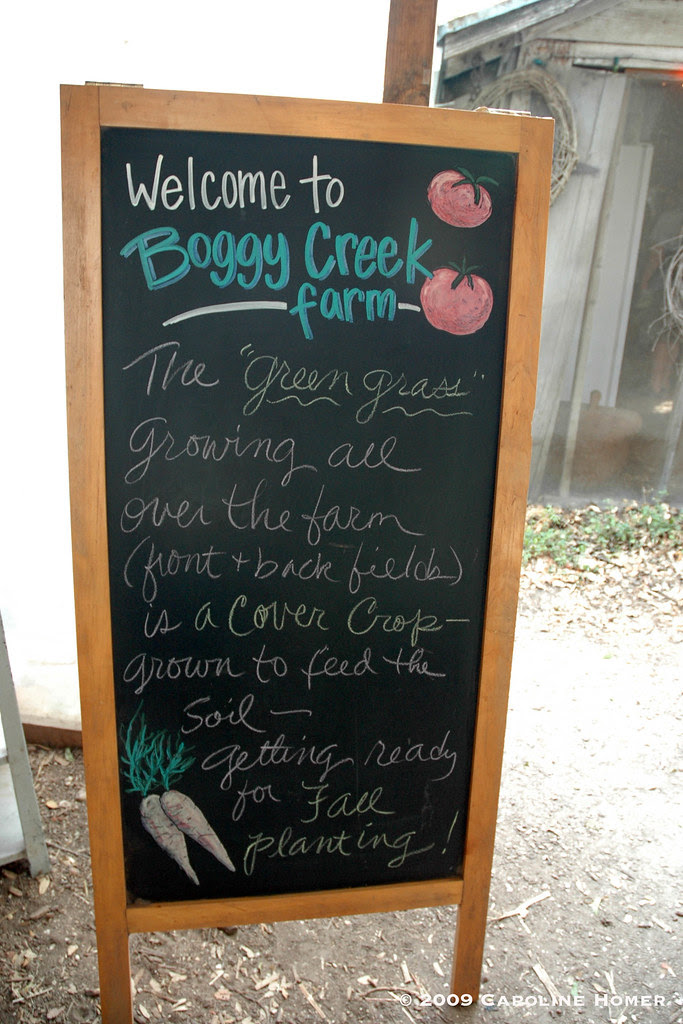 Welcome to
Boggy Creek
farm
The "green grass"
Growing all
over the farm
(front + back fields)
is a Cover Crop-
grown to feed the
Soil -
getting ready
for Fall
planting!
© 2009 Caroline Homer.